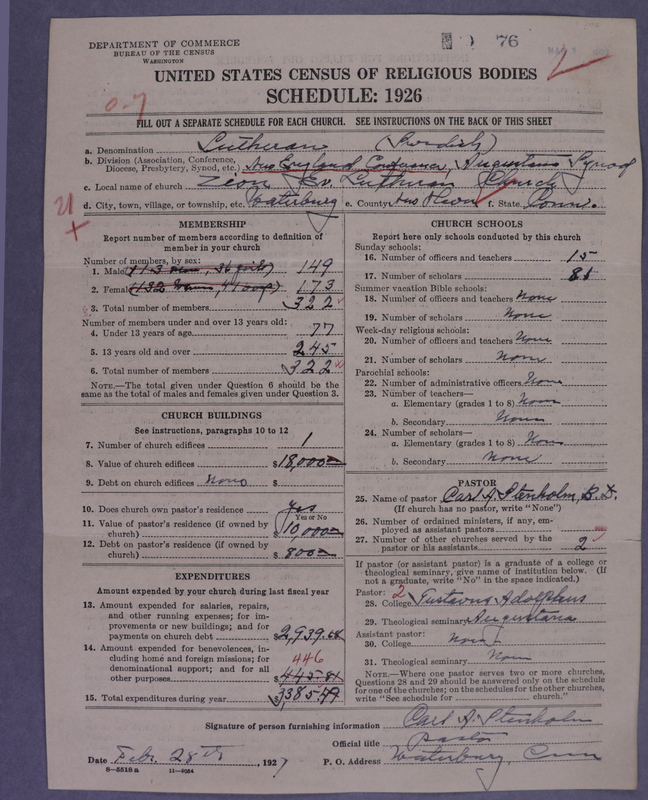 DEPARTMENT OF COMMERCE
BUREAU OF THE CENSUS
WASHINGTON
76
UNITED STATES CENSUS OF RELIGIOUS BODIES
SCHEDULE: 1926
0-7
FILL OUT A SEPARATE SCHEDULE FOR EACH CHURCH. SEE INSTRUCTIONS ON THE BACK OF THIS SHEET
a. Denomination Lutheran (Swedish)
b. Division (Association, Conference, Diocese, Presbytery, Synod, etc.) New England Conference, Augustana Synod
c. Local name of church Zion Ev. Lutheran Church
d. City, town, village, or township, etc. Waterbury e. County New Haven f. State Conn.
21
MEMBERSHIP
Report number of members according to definition of member in your church
Number of members, by sex:
1. Male (113 men, 36 girls) 149
2. Female 173
3. Total number of members 322
Number of members under and over 13 years old:
4. Under 13 years of age 77
5. 13 years old and over 245
6. Total number of members 322
NOTE.—The total given under Question 6 should be the same as the total of males and females given under Question 3.
CHURCH BUILDINGS
See instructions, paragraphs 10 to 12
7. Number of church edifices 1
8. Value of church edifices $18,000
9. Debt on church edifices None $
10. Does church own pastor's residence? Yes
Yes or No
11. Value of pastor's residence (if owned by church) $10,000
12. Debt on pastor's residence (if owned by church) $800
EXPENDITURES
Amount expended by your church during last fiscal year
13. Amount expended for salaries, repairs, and other running expenses; for improvements or new buildings; and for payments on church debt $2,939.68
14. Amount expended for benevolences, including home and foreign missions; for denominational support; and for all other purposes 446 $445.81
15. Total expenditures during year $3385.49
CHURCH SCHOOLS
Report here only schools conducted by this church
Sunday schools:
16. Number of officers and teachers 15
17. Number of scholars 81
Summer vacation Bible schools:
18. Number of officers and teachers None
19. Number of scholars None
Week-day religious schools:
20. Number of officers and teachers None
21. Number of scholars None
Parochial schools:
22. Number of administrative officers None
23. Number of teachers—
a. Elementary (grades 1 to 8) None
b. Secondary None
24. Number of scholars—
a. Elementary (grades 1 to 8) None
b. Secondary None
PASTOR
25. Name of pastor Carl A. Stenholm, B.D.
(If church has no pastor, write "None")
26. Number of ordained ministers, if any, employed as assistant pastors
27. Number of other churches served by the pastor or his assistants 2
If pastor (or assistant pastor) is a graduate of a college or theological seminary, give name of institution below. (If not a graduate, write "No" in the space indicated.)
Pastor: 2
28. College Gustavus Adolphus
29. Theological seminary Augustana
Assistant pastor:
30. College None
31. Theological seminary None
NOTE.—Where one pastor serves two or more churches, Questions 28 and 29 should be answered only on the schedule for one of the churches; on the schedules for the other churches, write "See schedule for church."
Signature of person furnishing information Carl A. Stenholm
Official title Pastor
Date Feb. 28th, 1927 P. O. Address Waterbury, Conn
8-5518a 11-9054